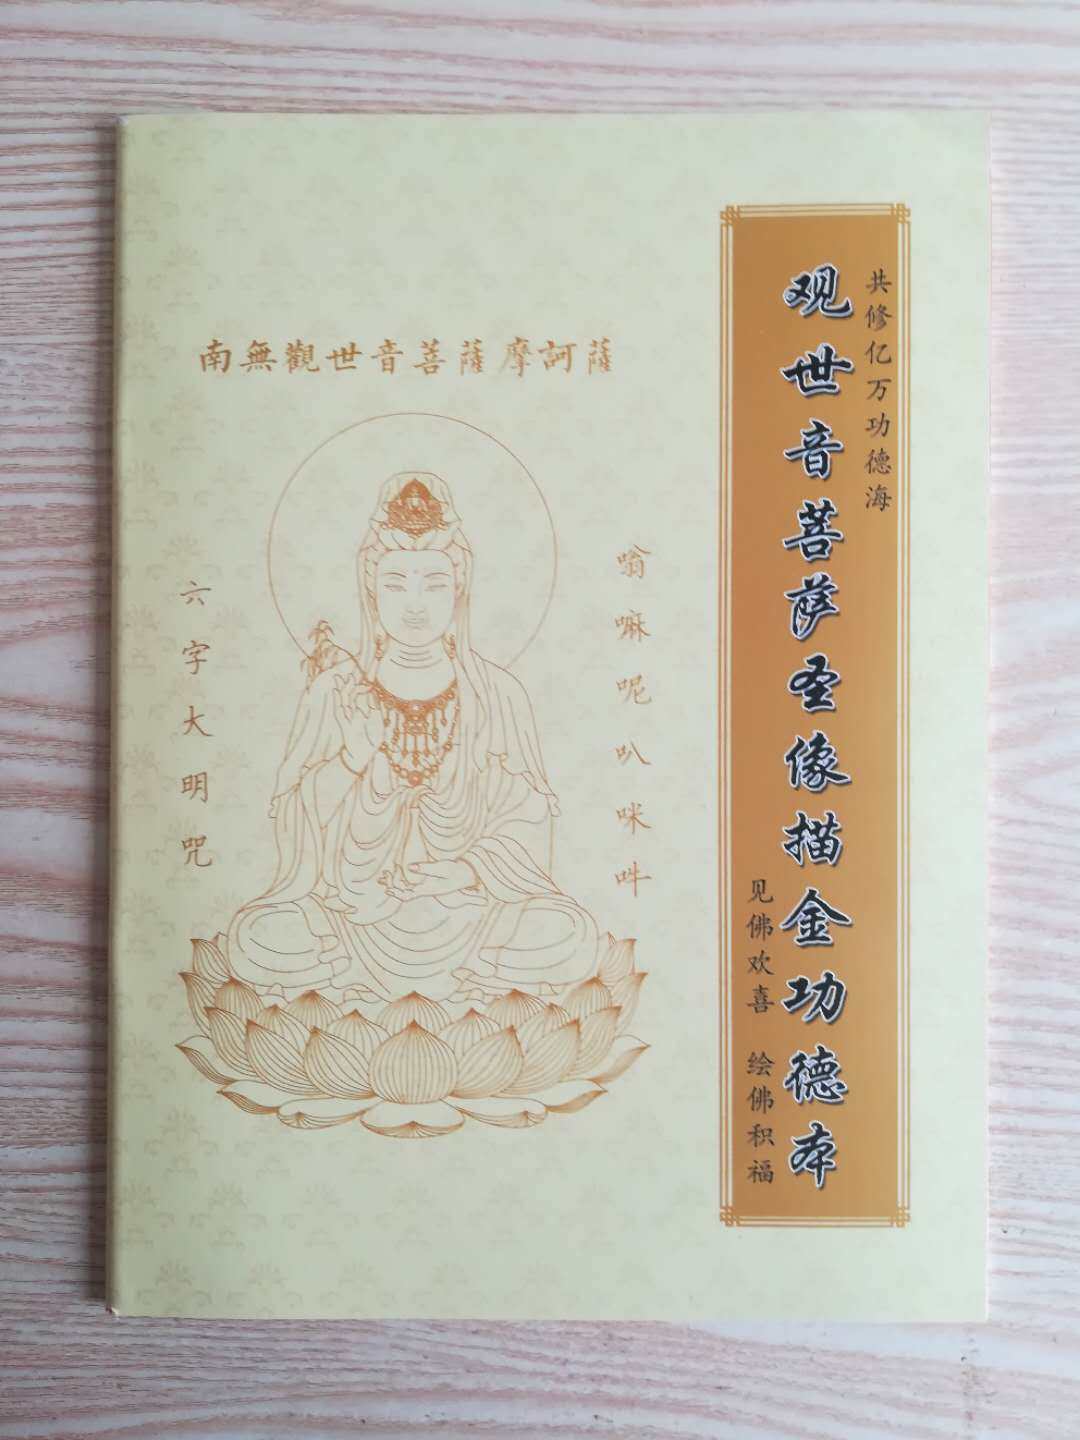 共修亿万功德海
观世音菩萨圣像描金功德本
见佛欢喜 绘佛积福
南無觀世音菩薩摩訶薩
嗡嘛呢叭咪吽
六字大明咒